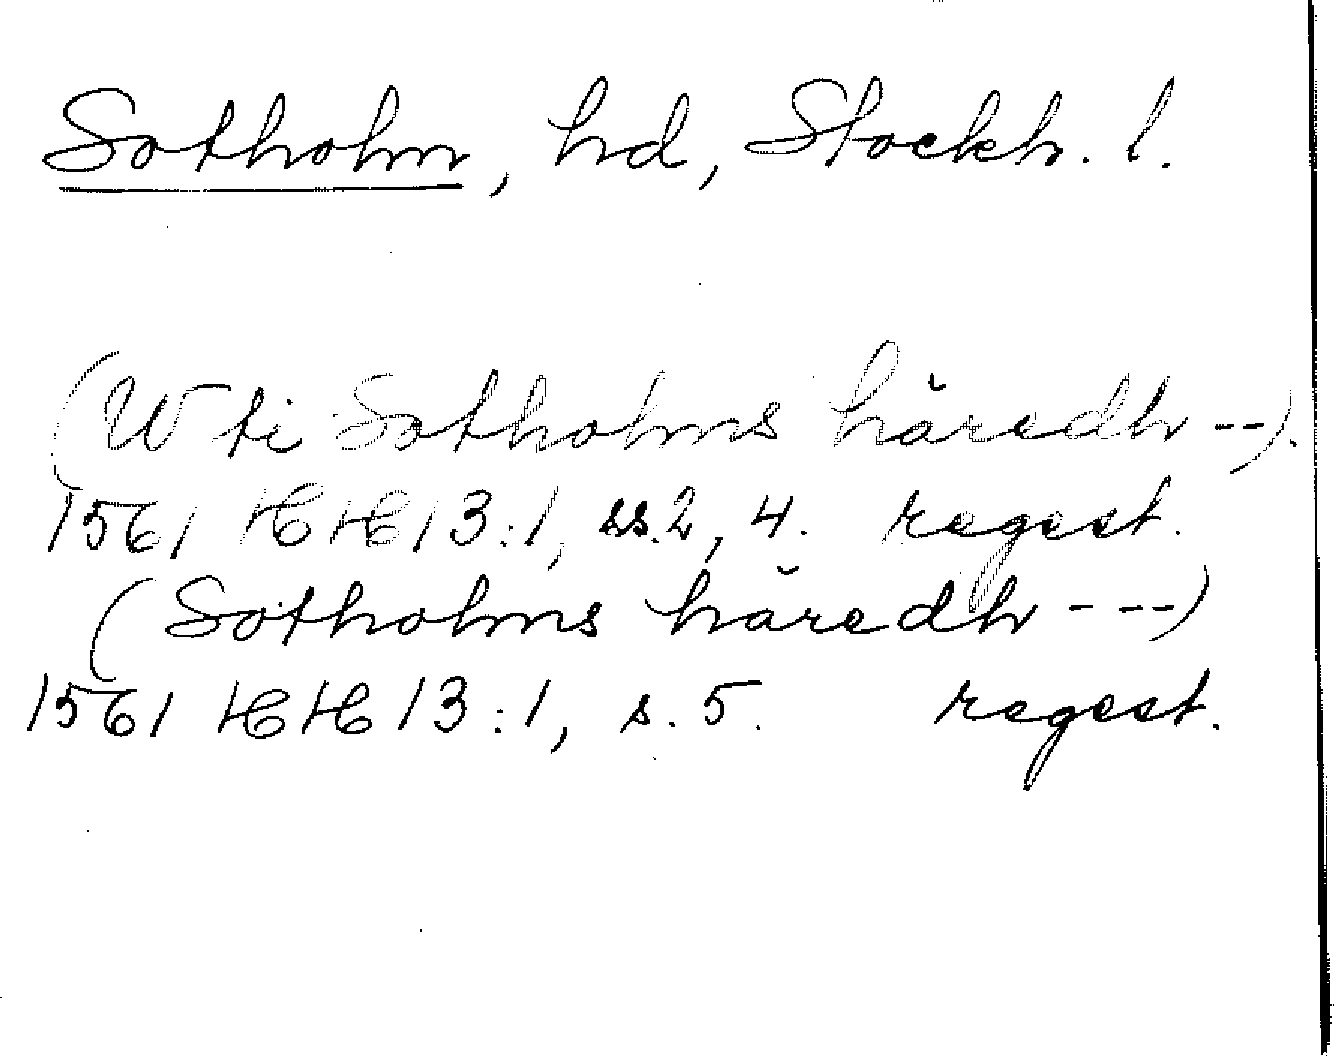 Sotholm, hd, Stockh. l.
(Wti Sotholms häredh --).
1561 HH 13:1, ss. 2, 4. regest.
(Sotholms häredh ---)
1561 HH 13:1, s. 5. regest.